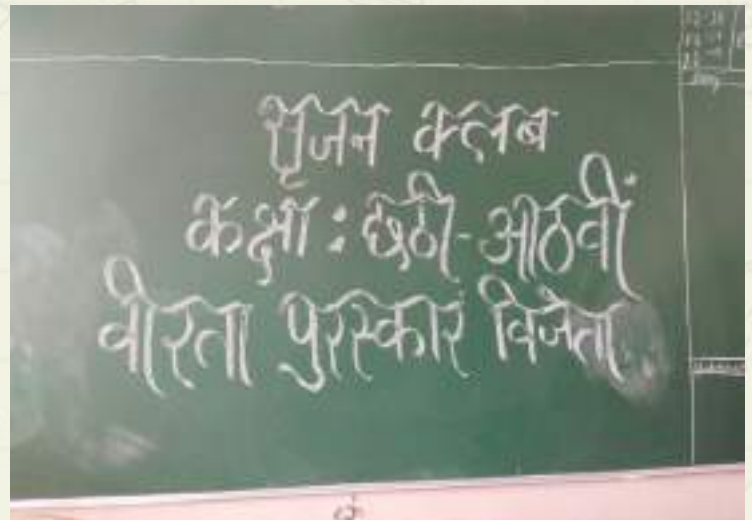 सृजन क्लब
कक्षा : छठी-आठवीं
वीरता पुरस्कार विजेता